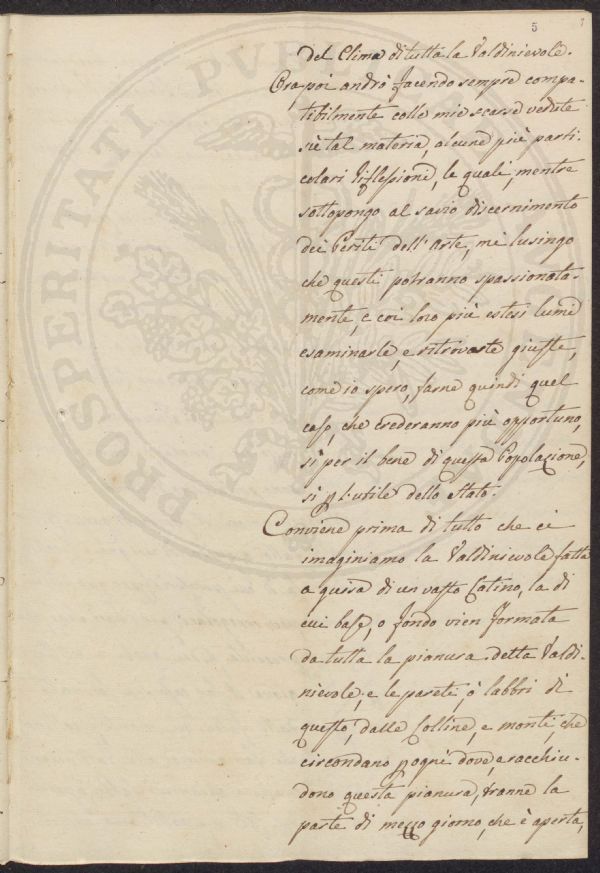 5
del Clima di tutta la Valdinievole.
Ora poi andrò facendo sempre compa-
tibilmente colle mie scarse vedute
sù tal materia, alcune più parti-
colari riflessioni, le quali, mentre
sottopongo al savio discernimento
dei Periti dell'Arte, mi lusingo
che questi potranno spassionata-
mente, e coi loro più estesi lumi
esaminarle, e ritrovarle giuste,
come io spero, farne quindi quel
caso, che crederanno più opportuno,
sì per il bene di questa Popolazione,
sì p l'utile dello Stato.
Conviene prima di tutto che ci
imaginiamo la Valdinievole fatta
a guisa di un vasto Catino, la di
cui base, o fondo vien formata
da tutta la pianura detta Valdi-
nievole, e le pareti, ò labbri di
questo, dalle Colline, e monti, che
circondano p ogni dove, e racchiu-
dono questa pianura, tranne la
parte di mezzo giorno, che è aperta,
PROSPERITATI PVBL